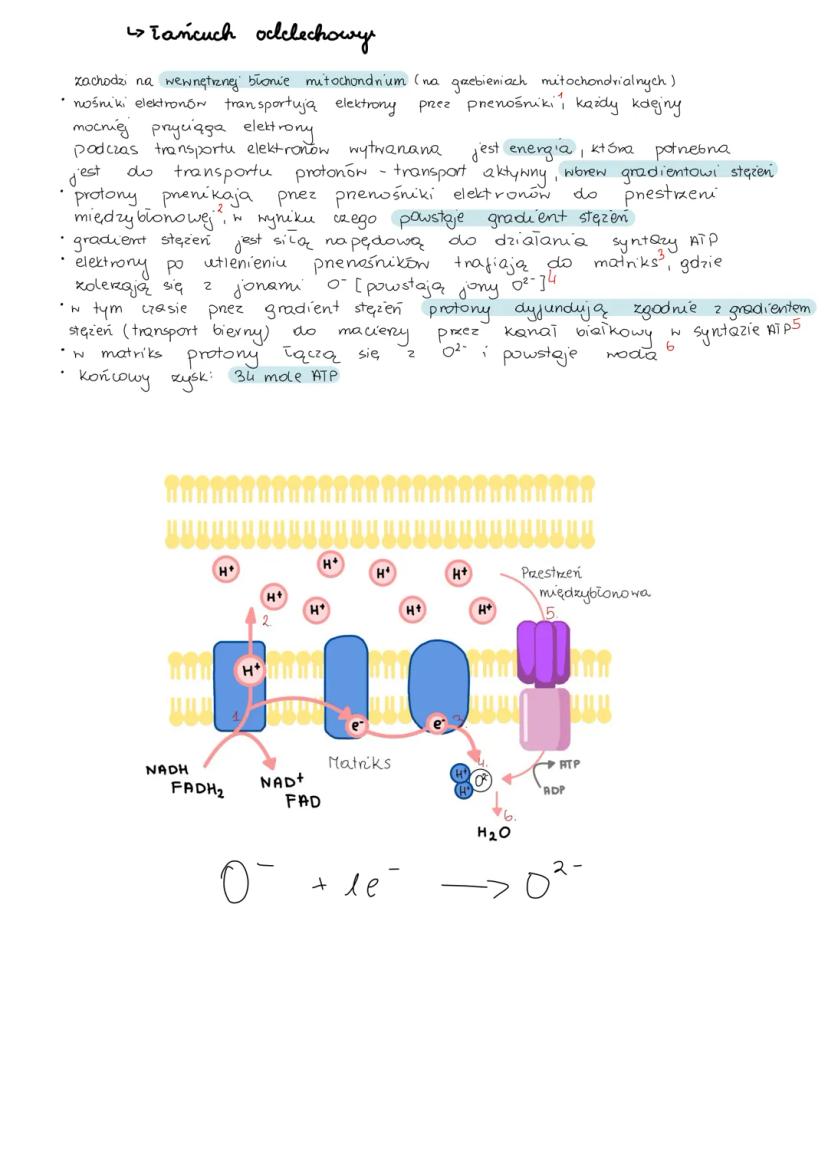 ↳ Łańcuch oddechowy
zachodzi na wewnętrznej błonie mitochondrium (na grzebieniach mitochondrialnych)
• nośniki elektronów transportują elektrony przez przenośniki¹, każdy kolejny
mocniej przyciąga elektrony
podczas transportu elektronów wytwarzana jest energia, która potrzebna
jest do transportu protonów - transport aktywny, wbrew gradientowi stężeń
• protony przenikają przez przenośniki elektronów do przestrzeni
międzybłonowej², w wyniku czego powstaje gradient stężeń
• gradient stężeń jest siłą napędową do działania syntazy ATP
• elektrony po utlenieniu przenośników trafiają do matriks³, gdzie
zderzają się z jonami O⁻ [powstają jony O²⁻]⁴
• w tym czasie przez gradient stężeń protony dyfundują zgodnie z gradientem
stężeń (transport bierny) do macierzy przez kanał białkowy w syntazie ATP⁵
• w matriks protony łączą się z O²⁻ i powstaje woda ⁶
• końcowy zysk: 34 mole ATP
H⁺ H⁺ H⁺ H⁺ Przestrzeń
H⁺ H⁺ H⁺ H⁺ międzybłonowa
2. 5.
H⁺
1 e⁻ e⁻ 3.
NADH FADH₂ NAD⁺ FAD Matriks
H⁺ H⁺ 4. O²⁻ ATP
ADP
6.
H₂O
O⁻ + 1e⁻ → O²⁻